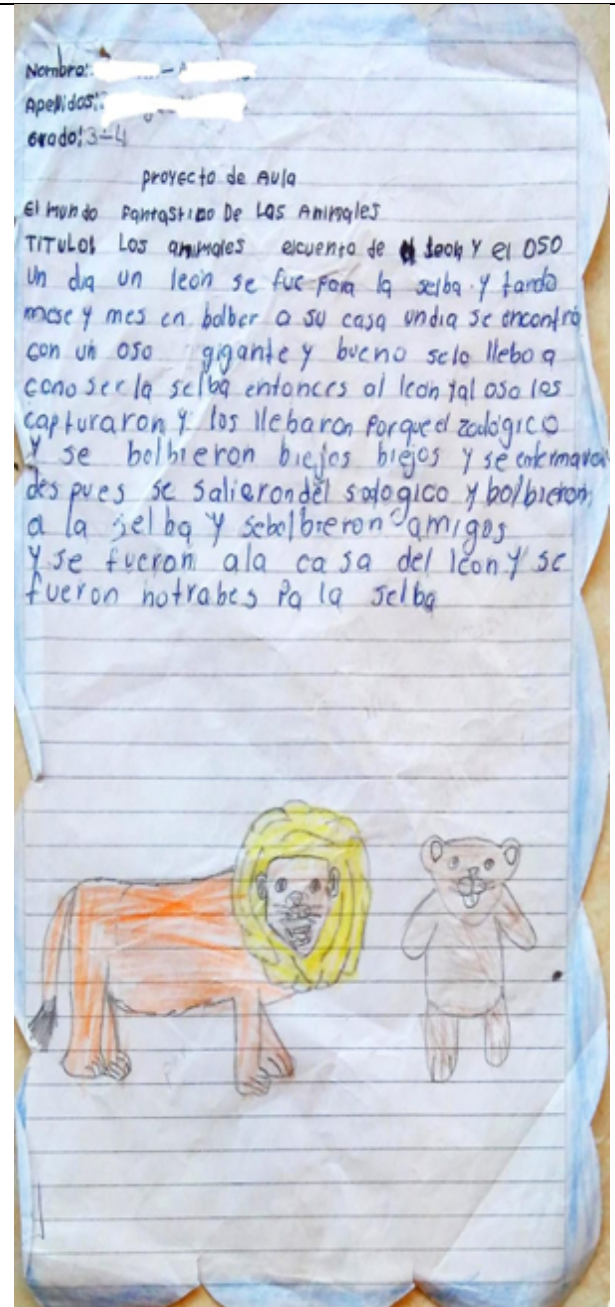 Nombre:
Apellidos:
Grado: 3-4
proyecto de Aula
El Mundo Fantastico De Las Animales
TITULOS Los animales elcuento de leon Y el OSO
Un dia un león se fue para la selba y tardo
mese y mes en bolber a su casa undia se encontró
con un oso gigante y bueno selo llebo a
conoser la selba entonces al leon jal oso los
capturaron y los llebaron porque el zoológico
Y se bolbieron biejos biejos y se enfermaron
des pues se salieron del sologico y bolbieron
a la selba y sebolbieron amigos
Y se fueron ala casa del león y se
fueron hotrabes Pa la selba